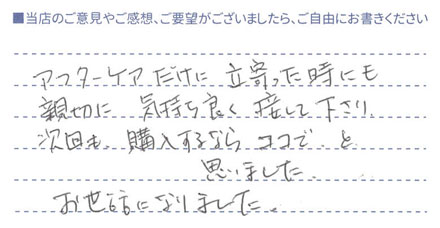 ■当店のご意見やご感想、ご要望がございましたら、ご自由にお書きください
アフターケアだけに 立寄った時にも
親切に 気持ち良く 接して下さり、
次回も、購入するなら ココで、と
思いました。
お世話になりました。